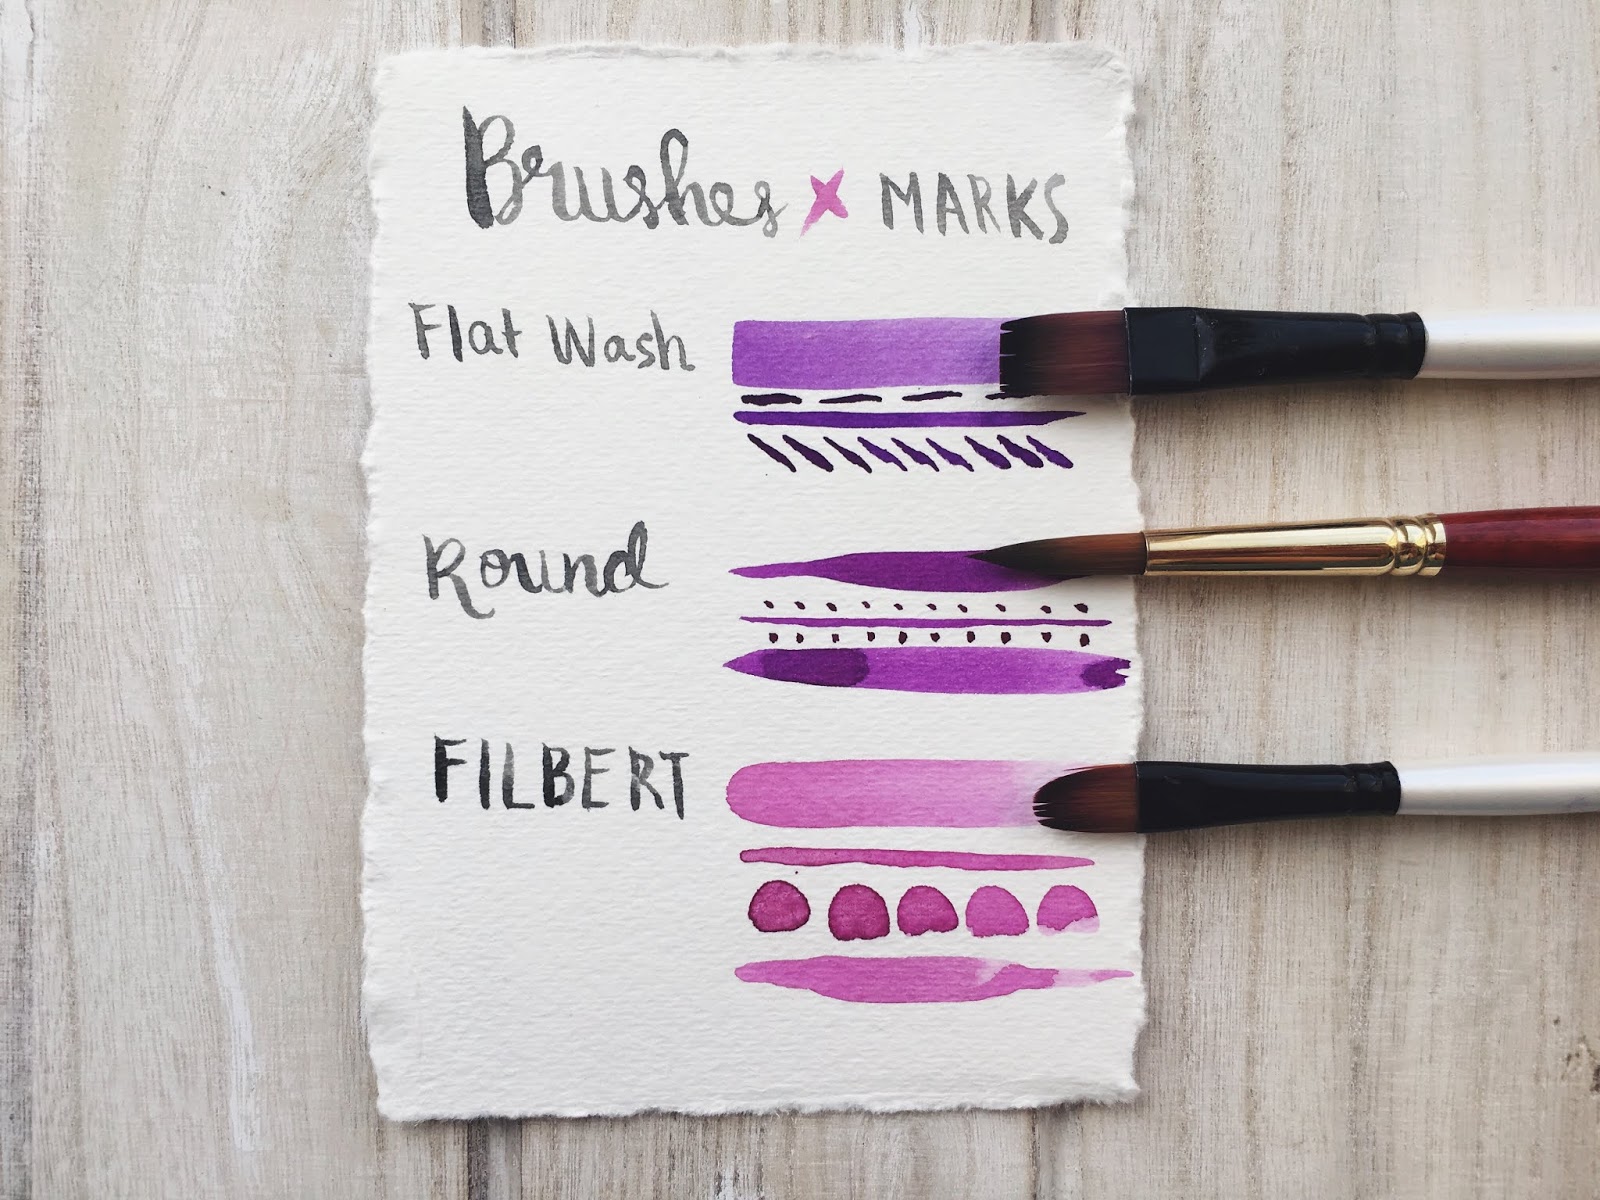 Brushes x MARKS
Flat Wash
Round
FILBERT